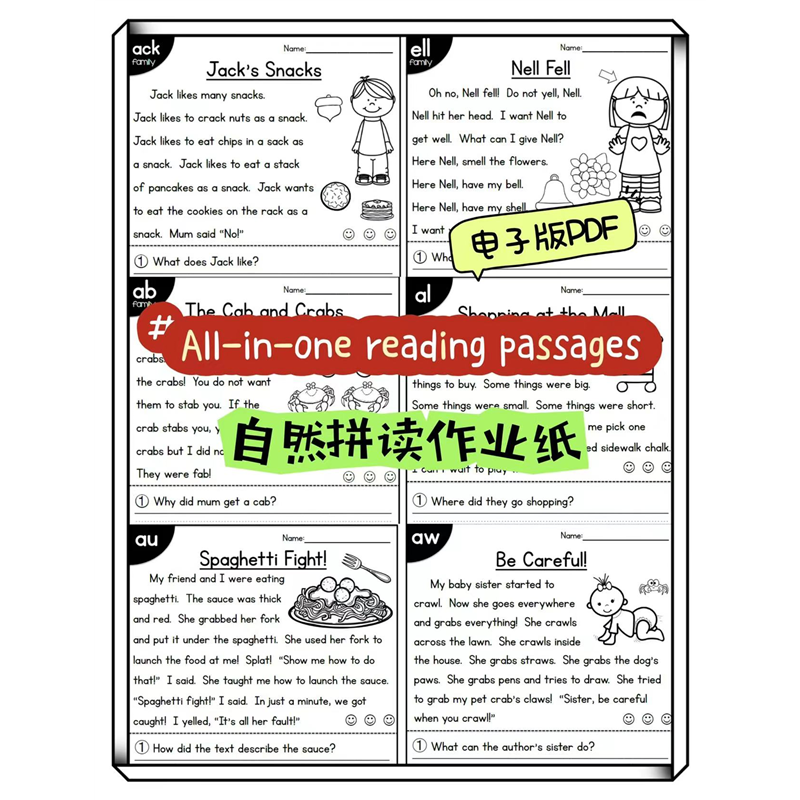 ack
family
Name:
Jack's Snacks
Jack likes many snacks.
Jack likes to crack nuts as a snack.
Jack likes to eat chips in a sack as
a snack. Jack likes to eat a stack
of pancakes as a snack. Jack wants
to eat the cookies on the rack as a
snack. Mum said "No!"
① What does Jack like?
ell
family
Name:
Nell Fell
Oh no, Nell fell! Do not yell, Nell.
Nell hit her head. I want Nell to
get well. What can I give Nell?
Here Nell, smell the flowers.
Here Nell, have my bell.
Here Nell, have my shell.
I want
①
电子版PDF
ab
family
Name:
The Cab and Crabs
#All-in-one reading passages
crabs
the crabs! You do not want
them to stab you. If the
crab stabs you,
crabs but I did
They were fab!
① Why did mum get a cab?
al
Name:
Shopping at the Mall
things to buy. Some things were big.
Some things were small. Some things were short.
me pick one
sidewalk chalk.
I can't wait to play
① Where did they go shopping?
自然拼读作业纸
au
Name:
Spaghetti Fight!
My friend and I were eating
spaghetti. The sauce was thick
and red. She grabbed her fork
and put it under the spaghetti. She used her fork to
launch the food at me! Splat! "Show me how to do
that!" I said. She taught me how to launch the sauce.
"Spaghetti fight!" I said. In just a minute, we got
caught! I yelled, "It's all her fault!"
① How did the text describe the sauce?
aw
Name:
Be Careful!
My baby sister started to
crawl. Now she goes everywhere
and grabs everything! She crawls
across the lawn. She crawls inside
the house. She grabs straws. She grabs the dog's
paws. She grabs pens and tries to draw. She tried
to grab my pet crab's claws! "Sister, be careful
when you crawl!"
① What can the author's sister do?